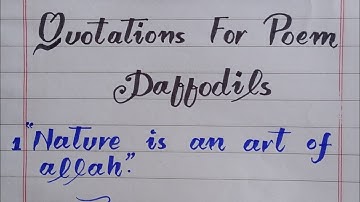 Quotations For Poem
Daffodils
1 "Nature is an art of
allah."